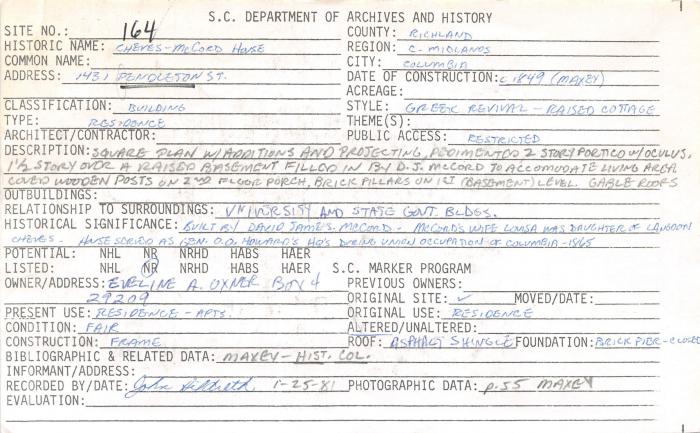 S.C. DEPARTMENT OF ARCHIVES AND HISTORY
SITE NO.: 164 COUNTY: RICHLAND
HISTORIC NAME: CHEVES-McCORD HOUSE REGION: C. MIDLANDS
COMMON NAME: CITY: COLUMBIA
ADDRESS: 1431 PENDLETON ST. DATE OF CONSTRUCTION: c1849 (MAXEY)
ACREAGE:
CLASSIFICATION: BUILDING STYLE: GREEK REVIVAL - RAISED COTTAGE
TYPE: RESIDENCE THEME(S):
ARCHITECT/CONTRACTOR: PUBLIC ACCESS: RESTRICTED
DESCRIPTION: SQUARE PLAN W/ADDITIONS AND PROJECTING, PEDIMENTED 2 STORY PORTICO W/OCULUS,
1½ STORY OVER A RAISED BASEMENT FILLED IN BY D.J. McCORD TO ACCOMODATE LIVING AREA
WOODEN POSTS ON 2ND FLOOR PORCH, BRICK PILLARS ON 1ST (BASEMENT) LEVEL. GABLE ROOFS
OUTBUILDINGS:
RELATIONSHIP TO SURROUNDINGS: UNIVERSITY AND STATE GOVT. BLDGS.
HISTORICAL SIGNIFICANCE: BUILT BY DAVID JAMES McCORD - McCORD'S WIFE LOUISA WAS DAUGHTER OF LANGDON
CHEVES - HOUSE SERVED AS GEN. O.O. HOWARD'S HQ'S DURING UNION OCCUPATION OF COLUMBIA - 1865
POTENTIAL: NHL NR NRHD HABS HAER
LISTED: NHL NR NRHD HABS HAER S.C. MARKER PROGRAM
OWNER/ADDRESS: EVELINE A. OXNER BOX 4 PREVIOUS OWNERS:
29209 ORIGINAL SITE: ✓ MOVED/DATE:
PRESENT USE: RESIDENCE - APTS. ORIGINAL USE: RESIDENCE
CONDITION: FAIR ALTERED/UNALTERED:
CONSTRUCTION: FRAME ROOF: ASPHALT SHINGLE FOUNDATION: BRICK PIER-CLOSED
BIBLIOGRAPHIC & RELATED DATA: MAXEY - HIST. COL.
INFORMANT/ADDRESS:
RECORDED BY/DATE: John 1-25-81 PHOTOGRAPHIC DATA: p.55 MAXEY
EVALUATION: